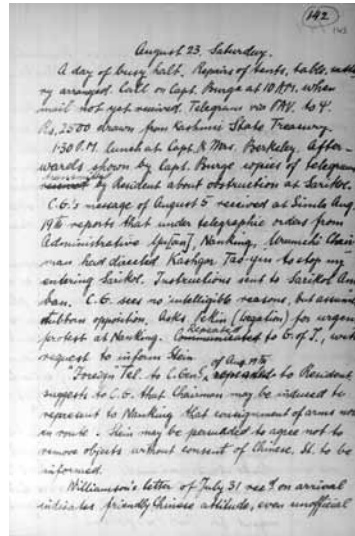 142
143
August 23, Saturday.
A day of busy halt. Repairs of tents, table,
ry arranged. Call on Capt. Burge at 10 A.M. when
mail not yet received. Telegram via to
Rs. 2500 drawn from Kashmir State Treasury.
1·30 P.M. lunch at Capt. & Mrs. Berkeley. After-
wards shown by Capt. Burge copies of telegrams
by Resident about obstruction at Sarikol.
C.G.'s message of August 5 received at Simla Aug.
19th reports that under telegraphic orders from
Administrative Yu[an], Nanking, Urumchi Chair
man had directed Kashgar Tao-yin to stop my
entering Sarikol. Instructions sent to Sarikol Am
ban. C.G. sees no intelligible reasons, but
stubborn opposition. Asks Pekin (Legation) for urgent
protest at Nanking. Communicated Repeated to G. of I., with
request to inform Stein
Foreign Tel. to C. Gen. of Aug. 19th repeated to Resident
suggests to C.G. that Chairman may be induced to
represent to Nanking that consignment of arms now
in route; Stein may be persuaded to agree not to
remove objects without consent of Chinese. St. to be
informed.
Williamson's letter of July 31 recd. on arrival
indicates friendly Chinese attitude, even unofficial